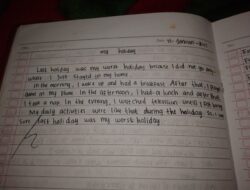 my holiday
Last holiday was my worst holiday because I did not go any-
where. I Just stayed in my home
In the morning, I woke up and had a breakfast. After that, I played
game in my phone. In the afternoon, I had a lunch and after that
I took a nap. In the evening, I watched television until I felt boring
My daily activities were like that during the holiday so, I am
sure last holiday was my worst holiday.